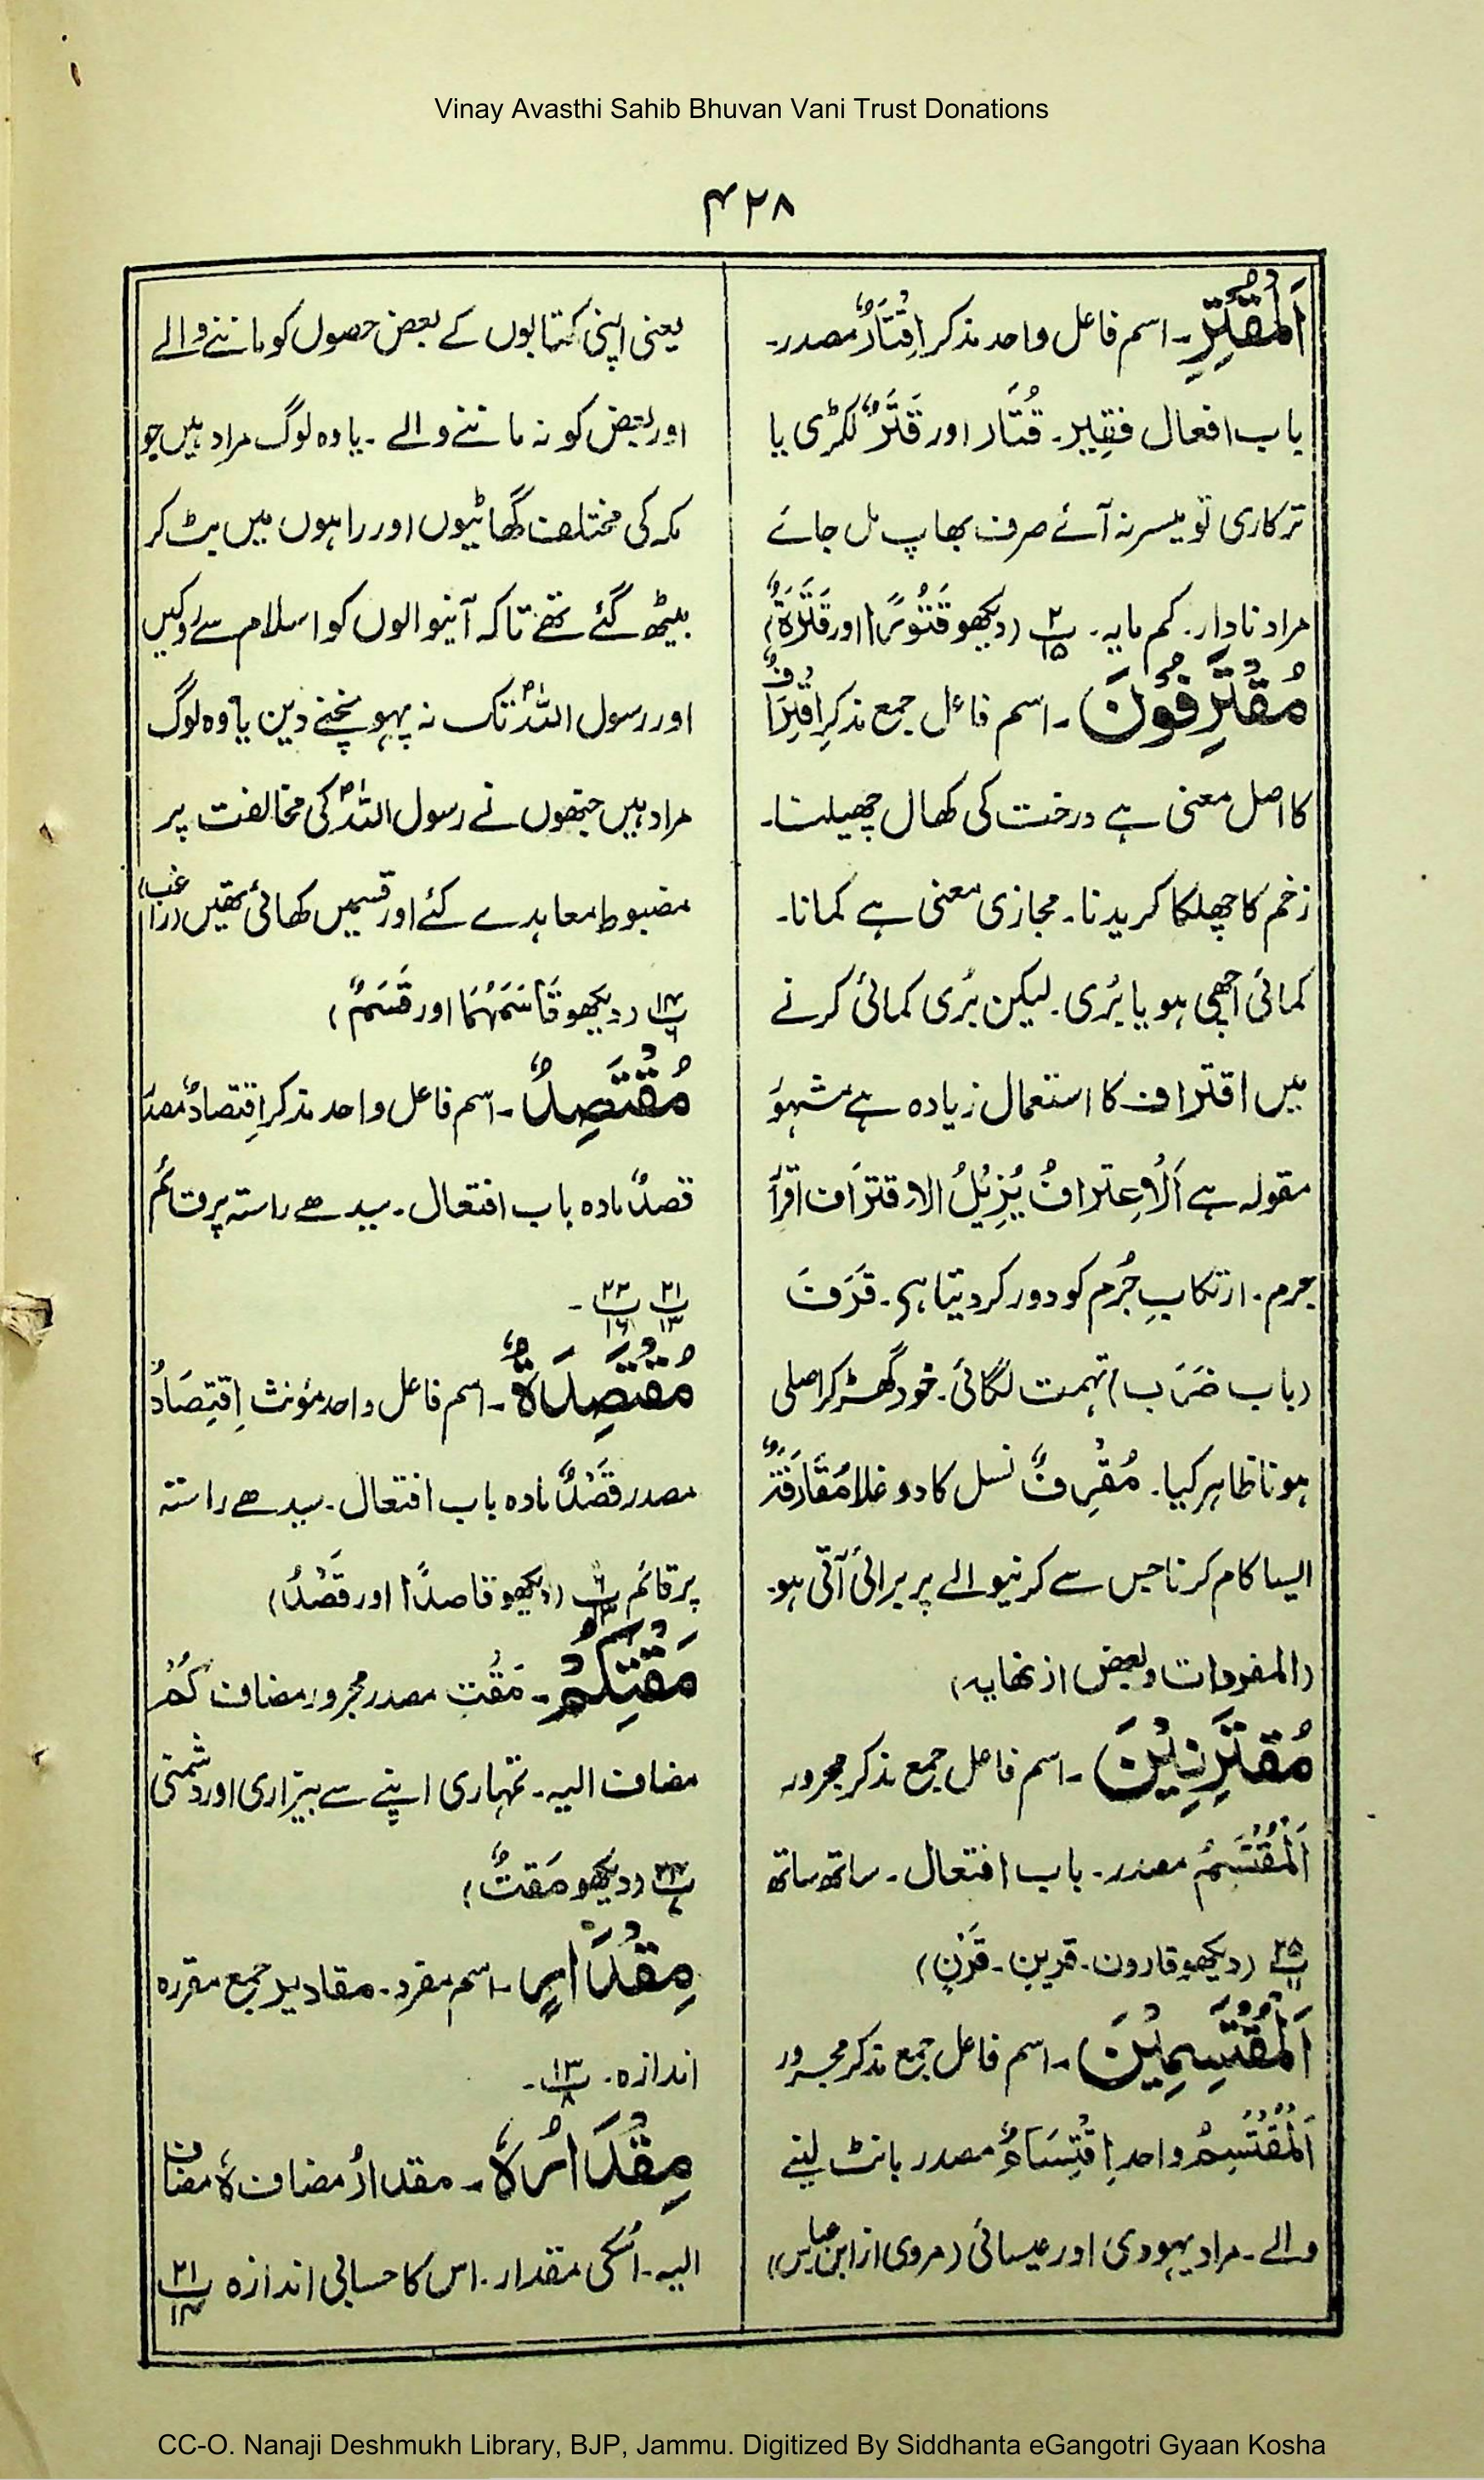 Vinay Avasthi Sahib Bhuvan Vani Trust Donations
۴۲۸
اَلْمُقْتِرِ۔ اسم فاعل واحد مذکر اِقْتَارٌ مصدر۔
باب افعال فقیر۔ قُتَار اور قَتَرٌ لکڑی یا
ترکاری تو میسر نہ آئے صرف بھاپ مل جائے
مراد نادار۔ کم مایہ۔ پ ۲ ۱۵ (دیکھو قَتُوْرًا اور قَتَرَةٌ)
مُقْتَرِفُوْنَ۔ اسم فاعل جمع مذکر اِقْتِرَافٌ
کا اصل معنی ہے درخت کی کھال چھیلنا۔
زخم کا چھلکا کریدنا۔ مجازی معنی ہے کمانا۔
کمائی اچھی ہو یا بُری۔ لیکن بُری کمائی کرنے
میں اقتراف کا استعمال زیادہ ہے مشہور
مقولہ ہے اَلْاِعترافُ یُزِیْلُ الاقترَاف اقرار
جرم۔ ارتکابِ جُرم کو دور کر دیتا ہے۔ قَرَفَ
(باب ضَرَب) تہمت لگائی۔ خود گھڑ کر اصلی
ہونا ظاہر کیا۔ مُقْرِفٌ نسل کا دوغلا مُقَارَفَةٌ
ایسا کام کرنا جس سے کرنیوالے پر برائی آتی ہو۔
(المفردات و بعض از نہایہ)
مُقْتَرِنِیْنَ۔ اسم فاعل جمع مذکر مجرور
اَلْمُقْتَسِمُ مصدر۔ باب افتعال۔ ساتھ ساتھ
پ ۲۵ ۱۱ (دیکھو قارون۔ قرین۔ قَرْنٍ)
اَلْمُقْتَسِمِیْنَ۔ اسم فاعل جمع مذکر مجرور
اَلْمُقْتَسِمُ واحد اِقْتِسَامٌ مصدر بانٹ لینے
والے۔ مراد یہودی اور عیسائی (مروی از ابن عباس)
یعنی اپنی کتابوں کے بعض حصوں کو ماننے والے
اور بعض کو نہ ماننے والے۔ یا وہ لوگ مراد ہیں جو
مکہ کی مختلف گھاٹیوں اور راہوں میں بٹ کر
بیٹھ گئے تھے تاکہ آنیوالوں کو اسلام سے روکیں
اور رسول اللہؐ تک نہ پہونچنے دیں یا وہ لوگ
مراد ہیں جنھوں نے رسول اللہؐ کی مخالفت پر
مضبوط معاہدے کئے اور قسمیں کھائی تھیں (راغب)
پ ۱۴ ۶ (دیکھو قَاسَمَهُمَا اور قَسَمٌ)
مُقْتَصِدٌ۔ اسم فاعل واحد مذکر اِقتصادٌ مصدر
قصدٌ مادہ باب افتعال۔ سیدھے راستہ پر قائم
پ ۲۱ ۱۳ پ ۲۲ ۱۶۔
مُقْتَصِدَةٌ۔ اسم فاعل واحد مؤنث اِقْتِصَادٌ
مصدر قَصْدٌ مادہ باب افتعال۔ سیدھے راستہ
پر قائم پ ۶ ۱۳ (دیکھو قاصدًا اور قَصْدُ)
مَقْتِكُمْ۔ مَقْتِ مصدر مجرور مضاف كُمْ
مضاف الیہ۔ تمہاری اپنے سے بیزاری اور دشمنی
پ ۲۴ (دیکھو مَقتٌ)
مِقْدَارٍ۔ اسم مفرد۔ مقادیر جمع مقررہ
اندازہ۔ پ ۱۳ ۸۔
مِقْدَارُهٗ۔ مقدارُ مضاف هٗ مضاف
الیہ۔ اُسکی مقدار۔ اس کا حسابی اندازہ پ ۲۱ ۱۴
CC-O. Nanaji Deshmukh Library, BJP, Jammu. Digitized By Siddhanta eGangotri Gyaan Kosha